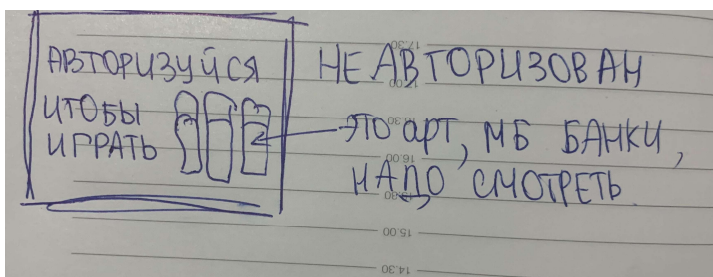 АВТОРИЗУЙСЯ
ЧТОБЫ
ИГРАТЬ
НЕ АВТОРИЗОВАН
ЭТО АРТ, МБ БАНКИ,
НАДО СМОТРЕТЬ.
17.30
17.00
16.30
16.00
15.30
15.00
14.30